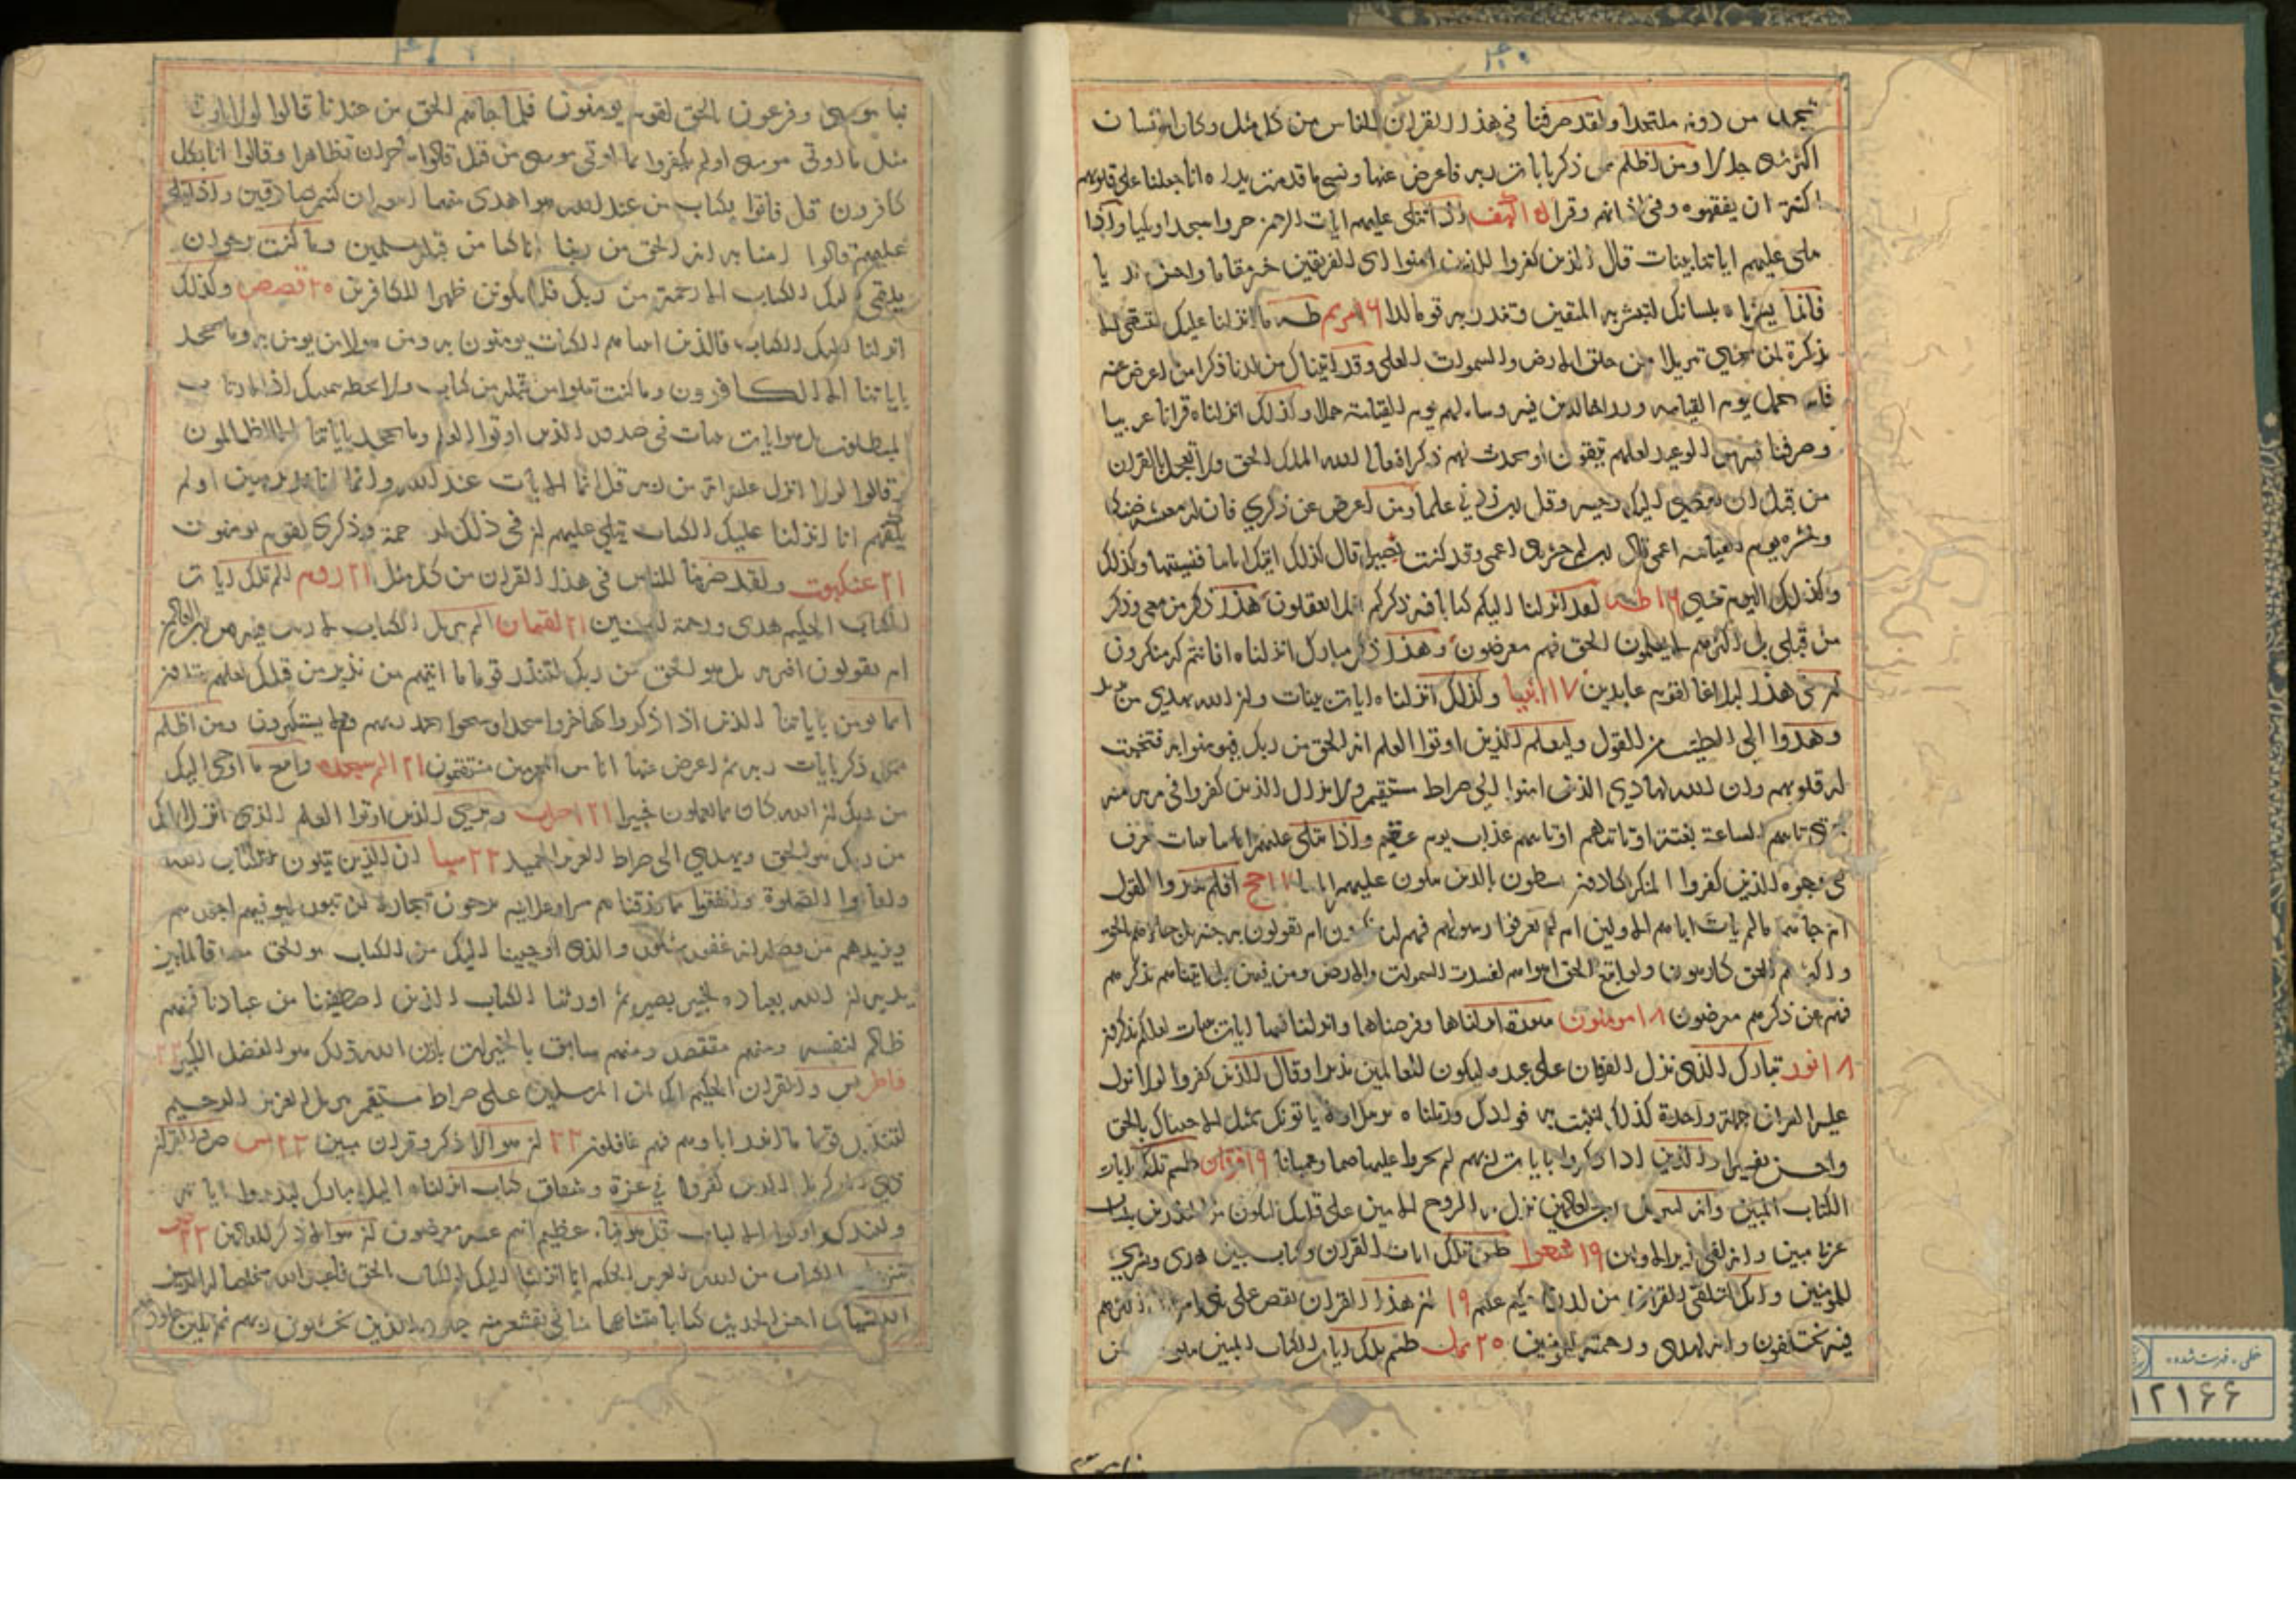 ۴۰
من دونه ملتحدا ولقد صرفنا فی هذا القران للناس من کل مثل وکان الانسان
اکثر شی جدلا ومن اظلم ممن ذکر بایات ربه فاعرض عنها ونسی ما قدمت یداه انا جعلنا علی قلوبهم
اکنة ان یفقهوه وفی اذانهم وقرا کهف اذا تتلی علیهم ایات الرحمن خروا سجدا وبکیا واذا
تتلی علیهم ایاتنا بینات قال الذین کفروا للذین امنوا ای الفریقین خیر مقاما واحسن ندیا
فانما یسرناه بلسانک لتبشر به المتقین وتنذر به قوما لدا ۱۶ مریم طه ما انزلنا علیک لتشقی الا
تذکرة لمن یخشی تنزیلا ممن خلق الارض والسموات العلی وقد اتیناک من لدنا ذکرا من اعرض عنه
یحمل یوم القیامه وزرا خالدین فیه وساء لهم یوم القیامة حملا وکذلک انزلناه قرانا عربیا
وصرفنا فیه من الوعید لعلهم یتقون او یحدث لهم ذکرا فتعالی الله الملک الحق ولا تعجل بالقران
من قبل ان یقضی الیک وحیه وقل رب زدنی علما ومن اعرض عن ذکری فان له معیشة ضنکا
ونحشره یوم القیامه اعمی قال رب لم حشرتنی اعمی وقد کنت بصیرا قال کذلک اتتک ایاتنا فنسیتها وکذلک
الیوم تنسی ۱۶ طه لقد انزلنا الیکم کتابا فیه ذکرکم افلا تعقلون هذا ذکر من معی وذکر
من قبلی بل اکثرهم لا یعلمون الحق فهم معرضون وهذا ذکر مبارک انزلناه افانتم له منکرون
ان فی هذا لبلاغا لقوم عابدین ۱۷ انبیا وکذلک انزلناه ایات بینات وان الله یهدی من یرید
وهدوا الی الطیب من القول ولیعلم الذین اوتوا العلم انه الحق من ربک فیومنوا به فتخبت
له قلوبهم وان الله لهادی الذین امنوا الی صراط مستقیم ولا یزال الذین کفروا فی مریة منه
حتی تاتیهم الساعة بغتة او یاتیهم عذاب یوم عقیم واذا تتلی علیهم ایاتنا بینات تعرف
فی وجوه الذین کفروا المنکر یکادون یسطون بالذین یتلون علیهم ایاتنا ۱۷ حج افلم یدبروا القول
ام جاءهم ما لم یات اباءهم الاولین ام لم یعرفوا رسولهم فهم له منکرون ام یقولون به جنة بل جاءهم بالحق
واکثرهم للحق کارهون ولو اتبع الحق اهواءهم لفسدت السموات والارض ومن فیهن بل اتیناهم بذکرهم
فهم عن ذکرهم معرضون ۱۸ مومنون سورة انزلناها وفرضناها وانزلنا فیها ایات بینات لعلکم تذکرون
۱۸ نور تبارک الذی نزل الفرقان علی عبده لیکون للعالمین نذیرا وقال الذین کفروا لولا نزل
علیه القران جملة واحدة کذلک لنثبت به فوادک ورتلناه ترتیلا ولا یاتونک بمثل الا جئناک بالحق
واحسن تفسیرا والذین اذا ذکروا بایات ربهم لم یخروا علیها صما وعمیانا ۱۹ فرقان طسم تلک ایات
الکتاب المبین وانه لتنزیل رب العالمین نزل به الروح الامین علی قلبک لتکون من المنذرین بلسان
عربی مبین وانه لفی زبر الاولین ۱۹ شعرا طس تلک ایات القران وکتاب مبین هدی وبشری
للمومنین وانک لتلقی القران من لدن حکیم علیم ۱۹ ان هذا القران یقص علی بنی اسرائیل اکثر الذی هم
فیه یختلفون وانه لهدی ورحمة للمومنین ۲۰ نمل طسم تلک ایات الکتاب المبین نتلوا من
۴۱
نبا موسی وفرعون بالحق لقوم یومنون فلما جاءهم الحق من عندنا قالوا لولا اوتی
مثل ما اوتی موسی اولم یکفروا بما اوتی موسی من قبل قالوا سحران تظاهرا وقالوا انا بکل
کافرون قل فاتوا بکتاب من عند الله هو اهدی منهما اتبعه ان کنتم صادقین واذا یتلی
علیهم قالوا امنا به انه الحق من ربنا انا کنا من قبله مسلمین وما کنت ترجو ان
یلقی الیک الکتاب الا رحمة من ربک فلا تکونن ظهیرا للکافرین ۲۰ قصص وکذلک
انزلنا الیک الکتاب فالذین اتیناهم الکتاب یومنون به ومن هولاء من یومن به وما یجحد
بایاتنا الا الکافرون وما کنت تتلوا من قبله من کتاب ولا تخطه بیمینک اذا لارتاب
المبطلون بل هو ایات بینات فی صدور الذین اوتوا العلم وما یجحد بایاتنا الا الظالمون
وقالوا لولا انزل علیه ایة من ربه قل انما الایات عند الله وانما انا نذیر مبین اولم
یکفهم انا انزلنا علیک الکتاب یتلی علیهم ان فی ذلک لرحمة وذکری لقوم یومنون
۲۱ عنکبوت ولقد ضربنا للناس فی هذا القران من کل مثل ۲۱ روم الم تلک ایات
الکتاب الحکیم هدی ورحمة للمحسنین ۲۱ لقمان الم تنزیل الکتاب لا ریب فیه من رب العالمین
ام یقولون افتریه بل هو الحق من ربک لتنذر قوما ما اتیهم من نذیر من قبلک لعلهم یهتدون
انما یومن بایاتنا الذین اذا ذکروا بها خروا سجدا وسبحوا بحمد ربهم وهم لا یستکبرون ومن اظلم
ممن ذکر بایات ربه ثم اعرض عنها انا من المجرمین منتقمون ۲۱ الم سجده واتبع ما اوحی الیک
من ربک ان الله کان بما تعملون خبیرا ۲۱ احزاب ویری الذین اوتوا العلم الذی انزل الیک
من ربک هو الحق ویهدی الی صراط العزیز الحمید ۲۲ سبا ان الذین یتلون کتاب الله
واقاموا الصلوة وانفقوا مما رزقناهم سرا وعلانیة یرجون تجارة لن تبور لیوفیهم اجورهم
ویزیدهم من فضله انه غفور شکور والذی اوحینا الیک من الکتاب هو الحق مصدقا لما بین
یدیه ان الله بعباده لخبیر بصیر ثم اورثنا الکتاب الذین اصطفینا من عبادنا فمنهم
ظالم لنفسه ومنهم مقتصد ومنهم سابق بالخیرات باذن الله ذلک هو الفضل الکبیر ۲۲
فاطر یس والقران الحکیم انک لمن المرسلین علی صراط مستقیم تنزیل العزیز الرحیم
لتنذر قوما ما انذر اباوهم فهم غافلون ۲۲ ان هو الا ذکر وقران مبین ۲۳ یس ص والقران
ذی الذکر بل الذین کفروا فی عزة وشقاق کتاب انزلناه الیک مبارک لیدبروا ایاته
ولیتذکر اولوا الالباب قل هو نبا عظیم انتم عنه معرضون ان هو الا ذکر للعالمین ۲۳ ص
تنزیل الکتاب من الله العزیز الحکیم انا انزلنا الیک الکتاب بالحق فاعبد الله مخلصا له الدین
الله نزل احسن الحدیث کتابا متشابها مثانی تقشعر منه جلود الذین یخشون ربهم ثم تلین جلودهم
خطی - فهرست شده
۱۲۱۶۶